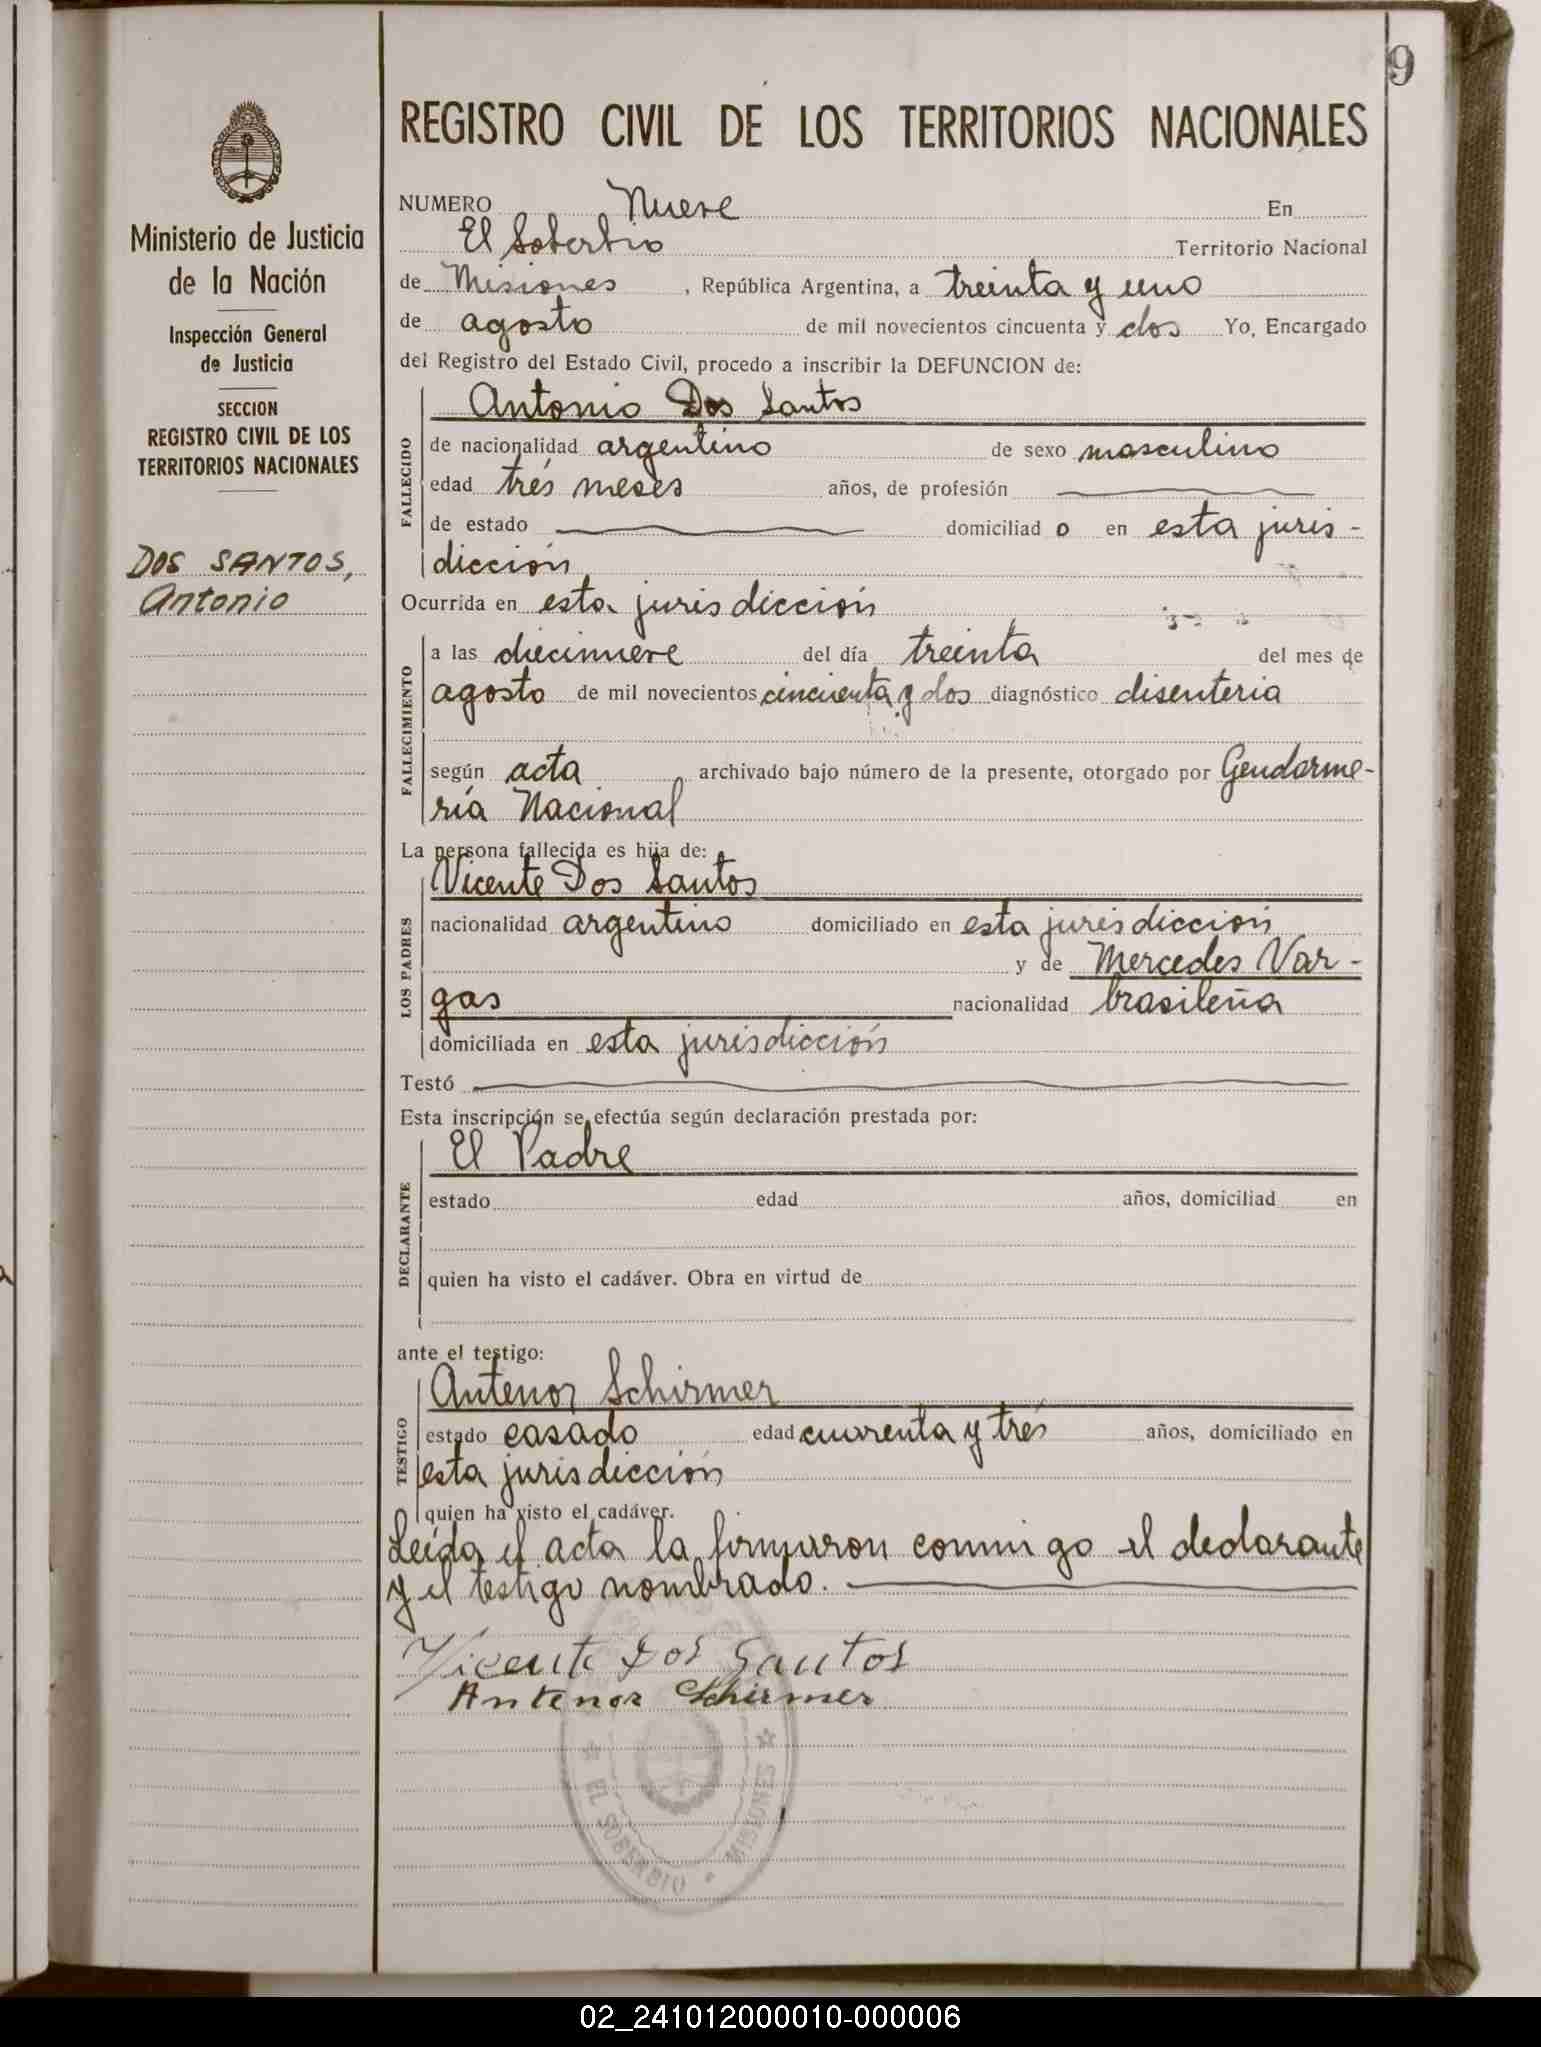 9
Ministerio de Justicia
de la Nación
Inspección General
de Justicia
SECCION
REGISTRO CIVIL DE LOS
TERRITORIOS NACIONALES
DOS SANTOS,
Antonio
REGISTRO CIVIL DE LOS TERRITORIOS NACIONALES
NUMERO Nueve En
El Soberbio Territorio Nacional
de Misiones , República Argentina, a treinta y uno
de agosto de mil novecientos cincuenta y dos Yo, Encargado
del Registro del Estado Civil, procedo a inscribir la DEFUNCION de:
FALLECIDO
Antonio Dos Santos
de nacionalidad argentino de sexo masculino
edad trés meses años, de profesión
de estado domiciliad o en esta juris-
dicción
Ocurrida en esta jurisdicción
FALLECIMIENTO
a las diecinueve del día treinta del mes de
agosto de mil novecientos cincuenta y dos diagnóstico disenteria
según acta archivado bajo número de la presente, otorgado por Gendarme-
ría Nacional
La persona fallecida es hija de:
LOS PADRES
Vicente Dos Santos
nacionalidad argentino domiciliado en esta jurisdicción
y de Mercedes Var-
gas nacionalidad brasileña
domiciliada en esta jurisdicción
Testó
Esta inscripción se efectúa según declaración prestada por:
DECLARANTE
El Padre
estado edad años, domiciliad en
quien ha visto el cadáver. Obra en virtud de
ante el testigo:
TESTIGO
Antenor Schirmer
estado casado edad cuarenta y trés años, domiciliado en
esta jurisdicción
quien ha visto el cadáver.
Leída el acta la firmaron conmigo el declarante
y el testigo nombrado.
Vicente Dos Santos
Antenor Schirmer
EL SOBERBIO MISIONES
02_241012000010-000006